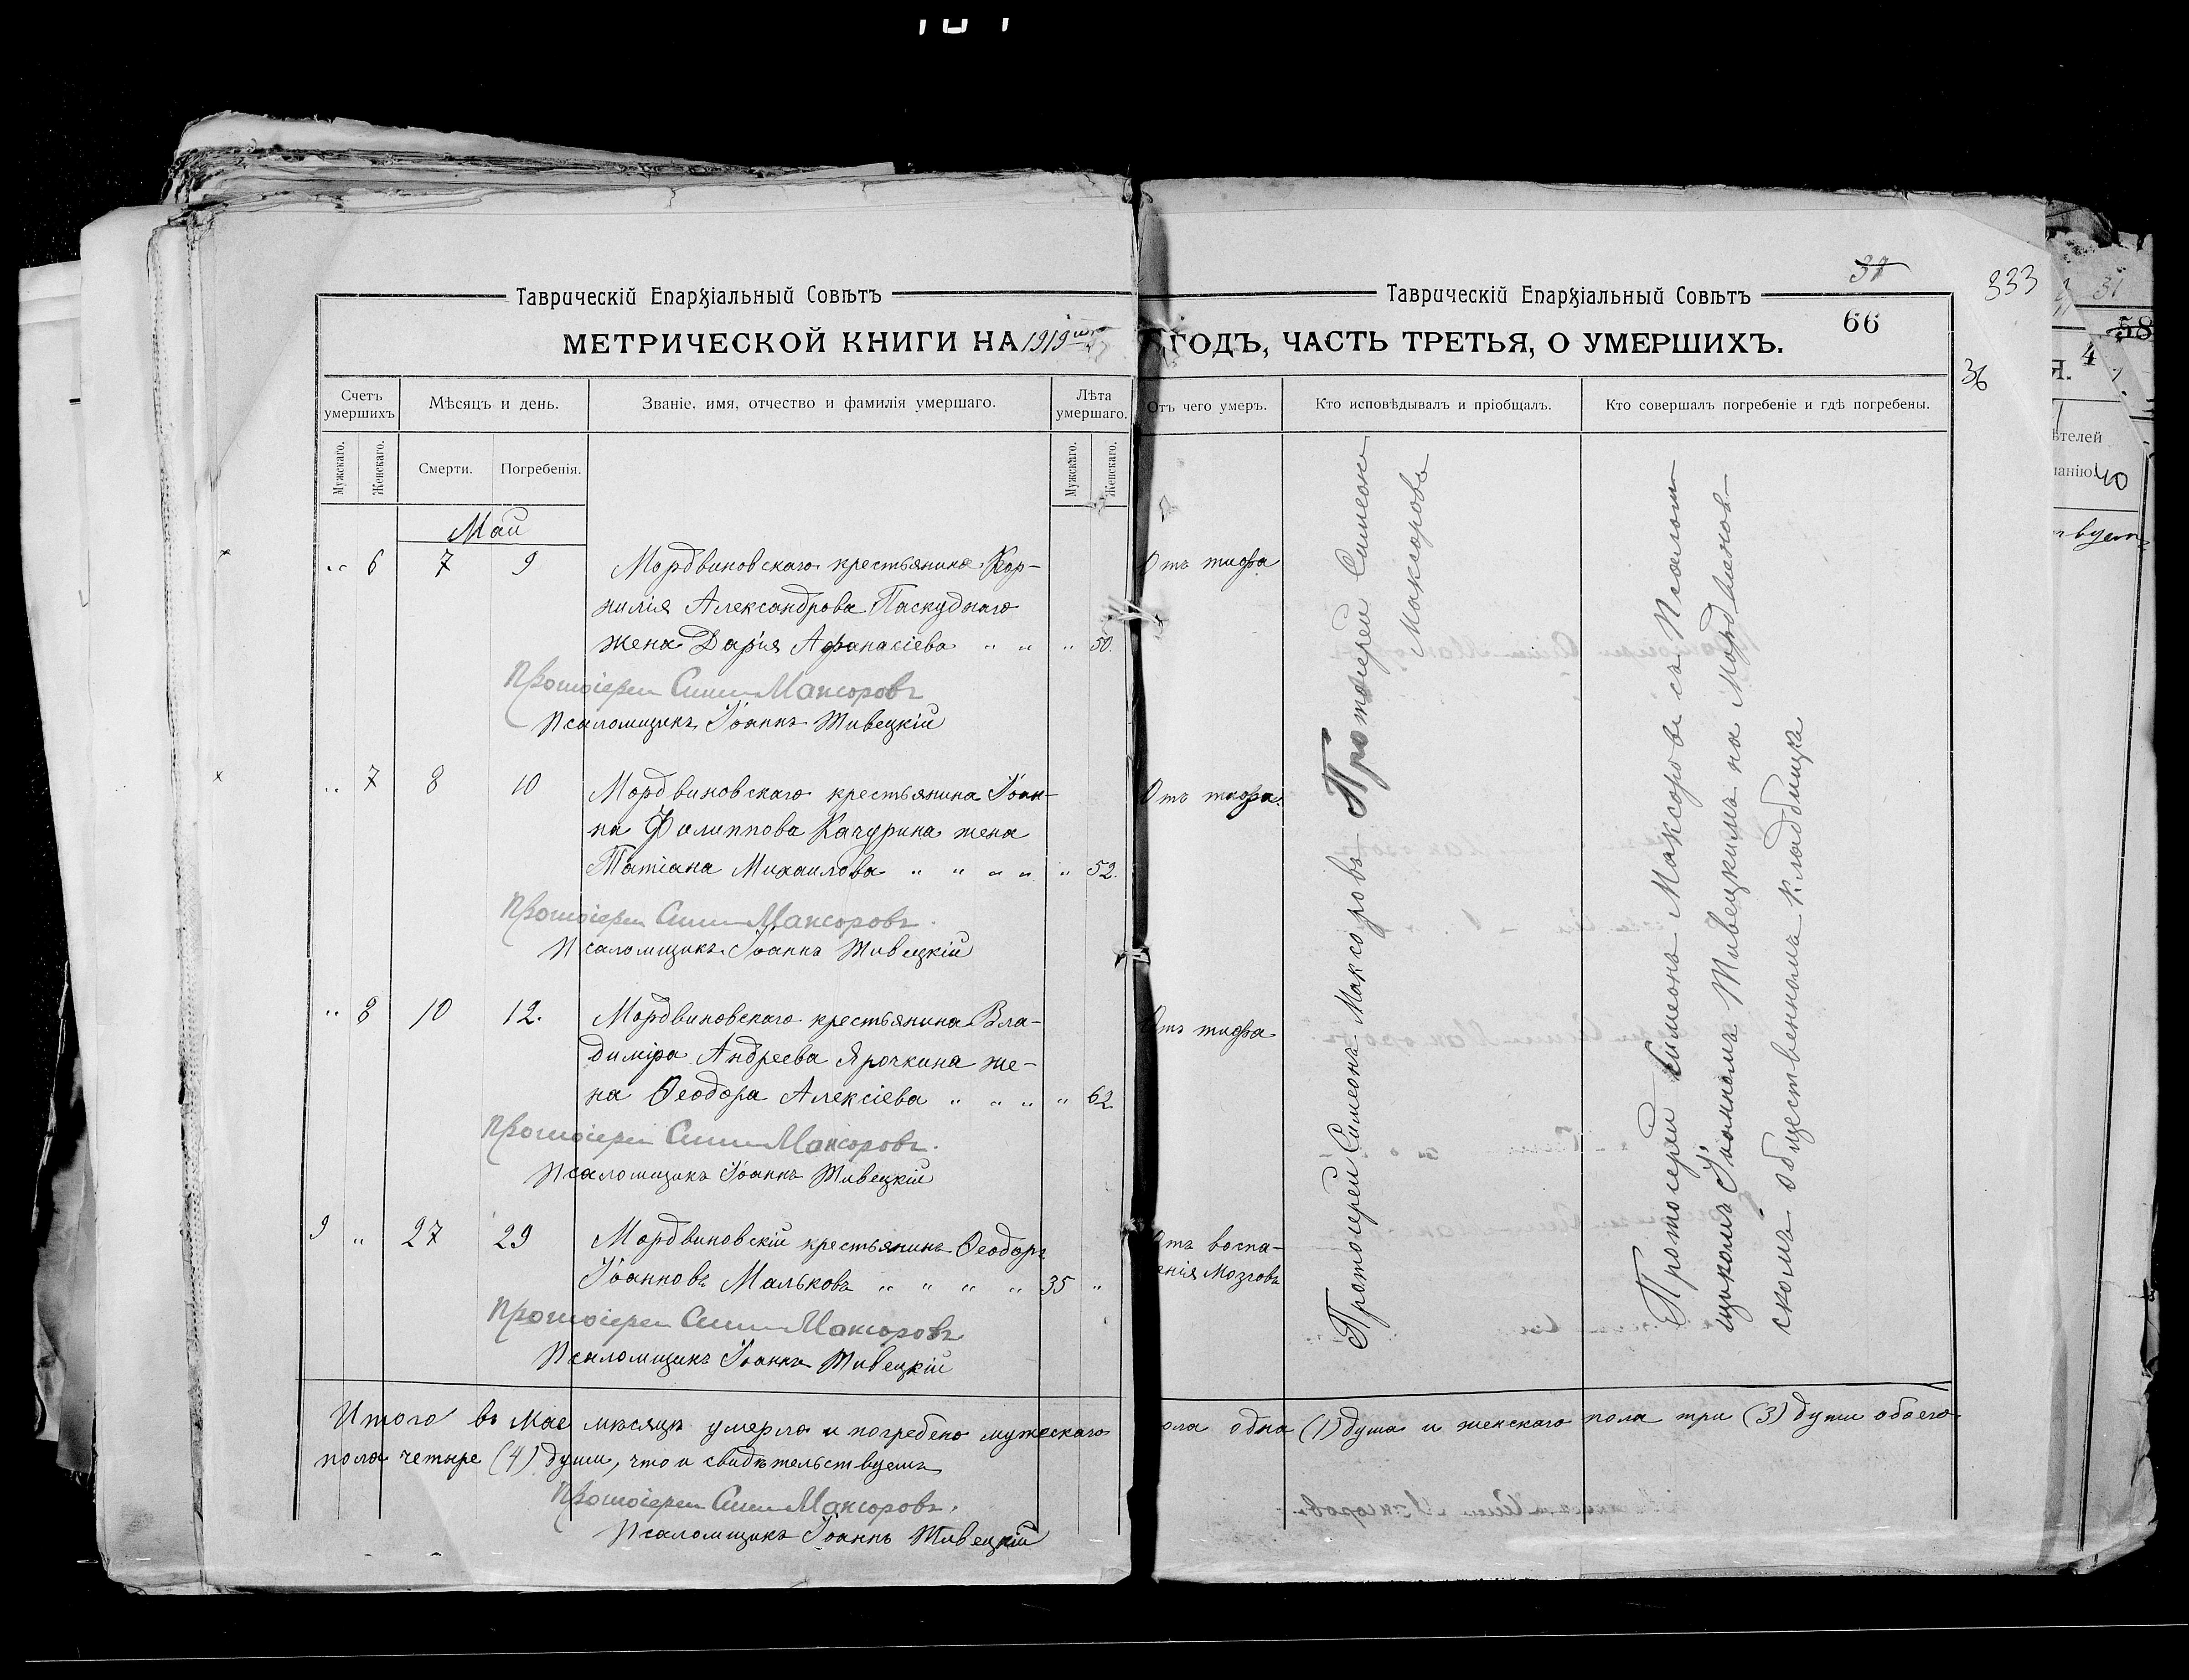 Таврическій Епархіальный Совѣтъ
МЕТРИЧЕСКОЙ КНИГИ НА 1919
Счетъ умершихъ
Мѣсяцъ и день.
Званіе, имя, отчество и фамилія умершаго.
Лѣта умершаго.
Мужскаго.
Женскаго.
Смерти.
Погребенія.
Мужскаго.
Женскаго.
Май
„ 6 7 9 Мордвиновскаго крестьянина Кор-
нилія Александрова Паскуднаго
жена Дарія Афанасіева „ „ „ 50.
Протоіерей Симеонъ Максоровъ
Псаломщикъ Іоаннъ Тивецкій
„ 7 8 10 Мордвиновскаго крестьянина Іоан-
на Филиппова Качурина жена
Татіана Михаилова „ „ „ „ „ 52.
Протоіерей Симеонъ Максоровъ.
Псаломщикъ Іоаннъ Тивецкій
„ 8 10 12. Мордвиновскаго крестьянина Вла-
диміра Андреева Ярочкина же-
на Ѳеодора Алексіева „ „ „ „ 62
Протоіерей Симеонъ Максоровъ.
Псаломщикъ Іоаннъ Тивецкій
9 „ 27 29 Мордвиновскій крестьянинъ Ѳеодоръ
Іоанновъ Мальковъ „ „ „ „ 35 „
Протоіерей Симеонъ Максоровъ
Псаломщикъ Іоаннъ Тивецкій
Итого въ Мае мѣсяцѣ умерло и погребено мужескаго
пола четыре (4) души, что и свидѣтельствуемъ
Протоіерей Симеонъ Максоровъ.
Псаломщикъ Іоаннъ Тивецкій
37
333
Таврическій Епархіальный Совѣтъ
66
ГОДЪ, ЧАСТЬ ТРЕТЬЯ, О УМЕРШИХЪ.
36
Отъ чего умеръ.
Кто исповѣдывалъ и пріобщалъ.
Кто совершалъ погребеніе и гдѣ погребены.
Отъ тифа
Отъ тифа.
Отъ тифа
Отъ воспа-
енія мозговъ
Протоіерей Симеонъ Максоровъ Протоіерей Симеонъ
Максоровъ
Протоіерей Симеонъ Максоровъ съ Псалом-
щикомъ Іоанномъ Тивецкимъ на Мордвинов-
скомъ общественномъ кладбищѣ
ола одна (1) душа и женскаго пола три (3) души обоего
31
58
Я. 4
ѣтелей
ланію
40